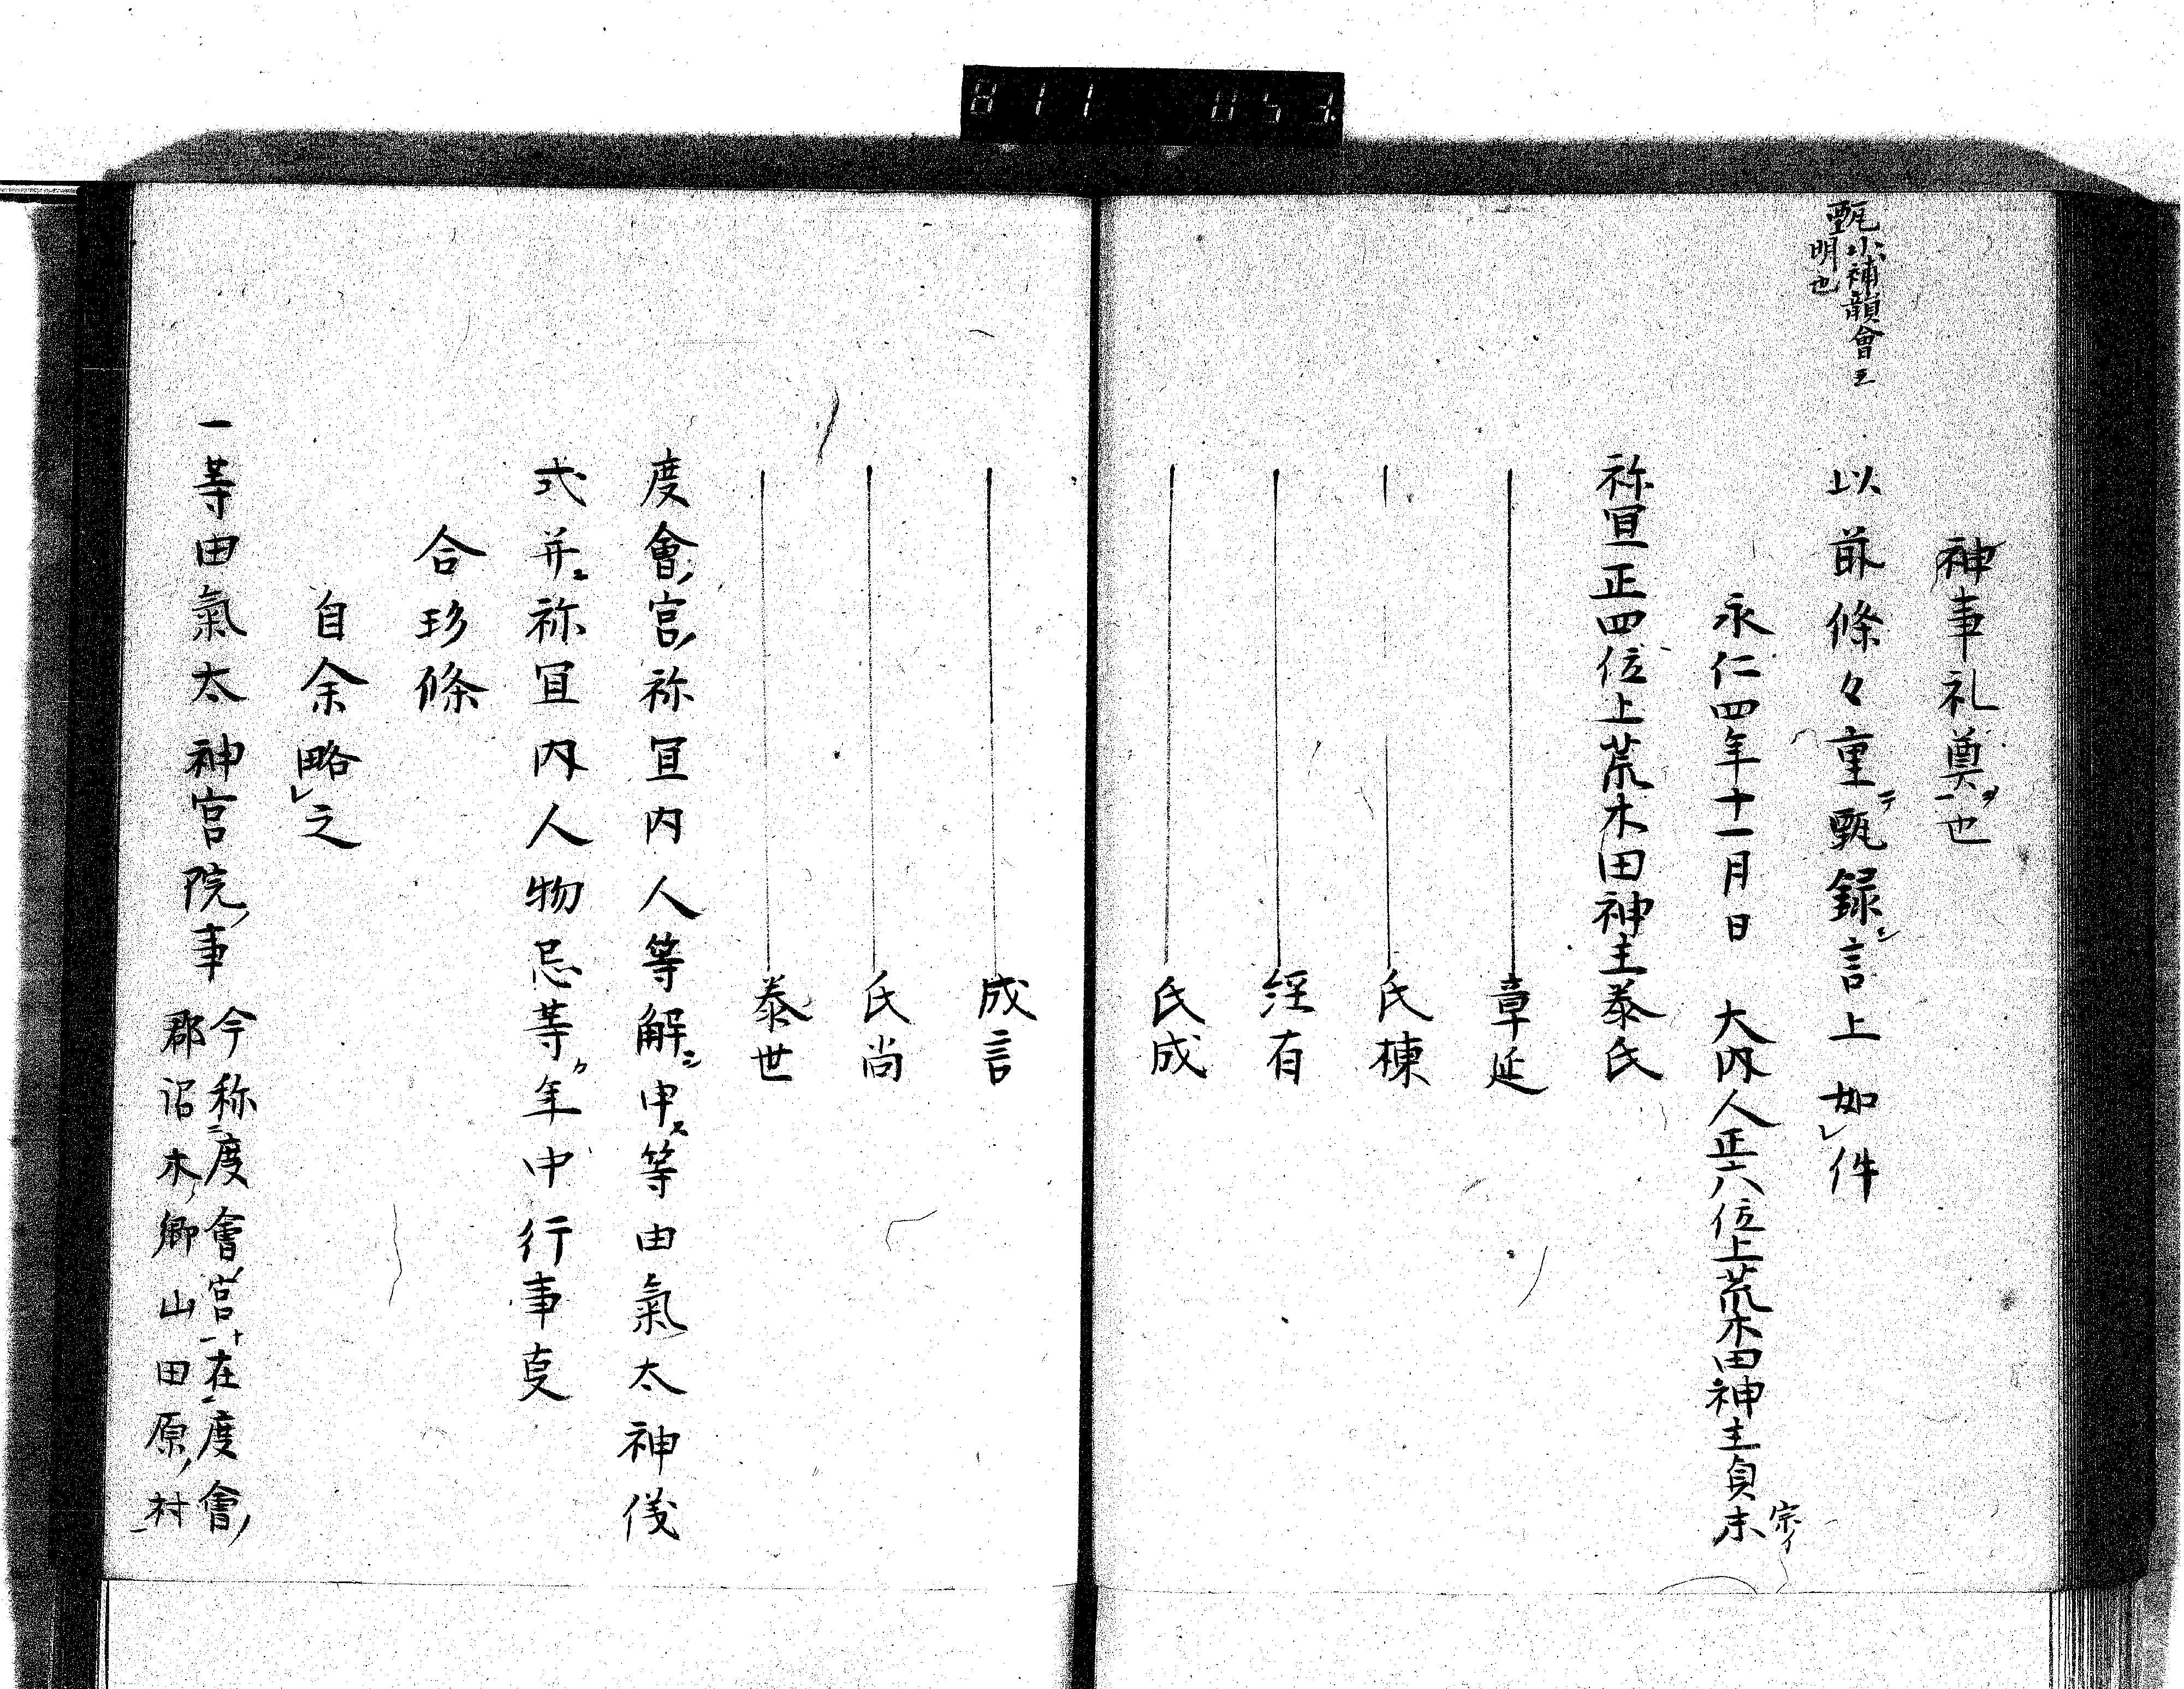 811 053
甄小補韻會云
明也
神事礼奠ヲ一也
以前條々重テ甄録シ言上如レ件
永仁四年十一月日 大内人正六位上荒木田神主貞末
宗イ
祢冝正四位上荒木田神主泰氏
章延
氏棟
経有
氏成
成言
氏尚
泰世
度會ノ宮ノ祢冝内人等解シ申ス等由氣太神儀
式并ニ祢冝内人物忌等カ年中行事叓
合玖條
自余略レ之
一等由氣太神宮院ノ事
今称二度會ノ宮一ト在二度會ノ
郡沼木ノ郷山田原ノ村一